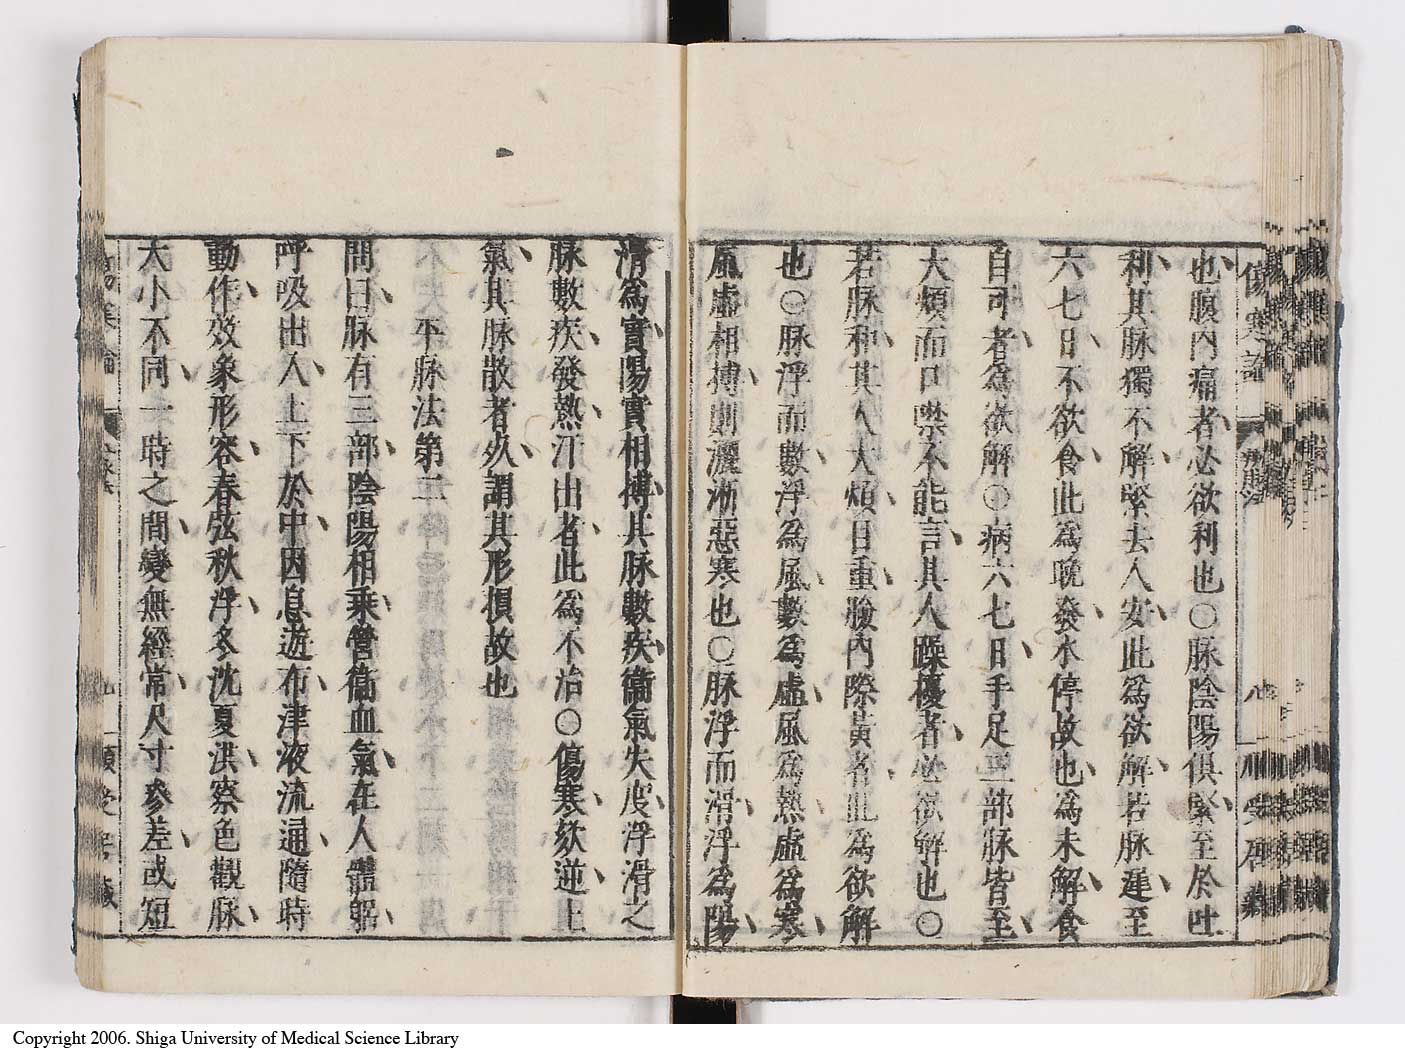 也腹內痛者必欲利也○脉陰陽俱緊至於吐
利其脉獨不解緊去人安此爲欲解若脉遲至
六七日不欲食此爲晩發水停故也爲未解食
自可者爲欲解○病六七日手足三部脉皆至
大煩而口噤不能言其人躁擾者必欲解也○
若脉和其人大煩目重瞼內際黃者此爲欲解
也○脉浮而數浮爲風數爲虛風爲熱虛爲寒
風虛相搏則灑淅惡寒也○脉浮而滑浮爲陽
滑爲實陽實相搏其脉數疾衞氣失度浮滑之
脉數疾發熱汗出者此爲不治○傷寒欬逆上
氣其脉散者死謂其形損故也
平脉法第二
問曰脉有三部陰陽相乘營衞血氣在人體躬
呼吸出入上下於中因息遊布津液流通隨時
動作效象形容春弦秋浮冬沈夏洪察色觀脉
大小不同一時之間變無經常尺寸參差或短
Copyright 2006. Shiga University of Medical Science Library